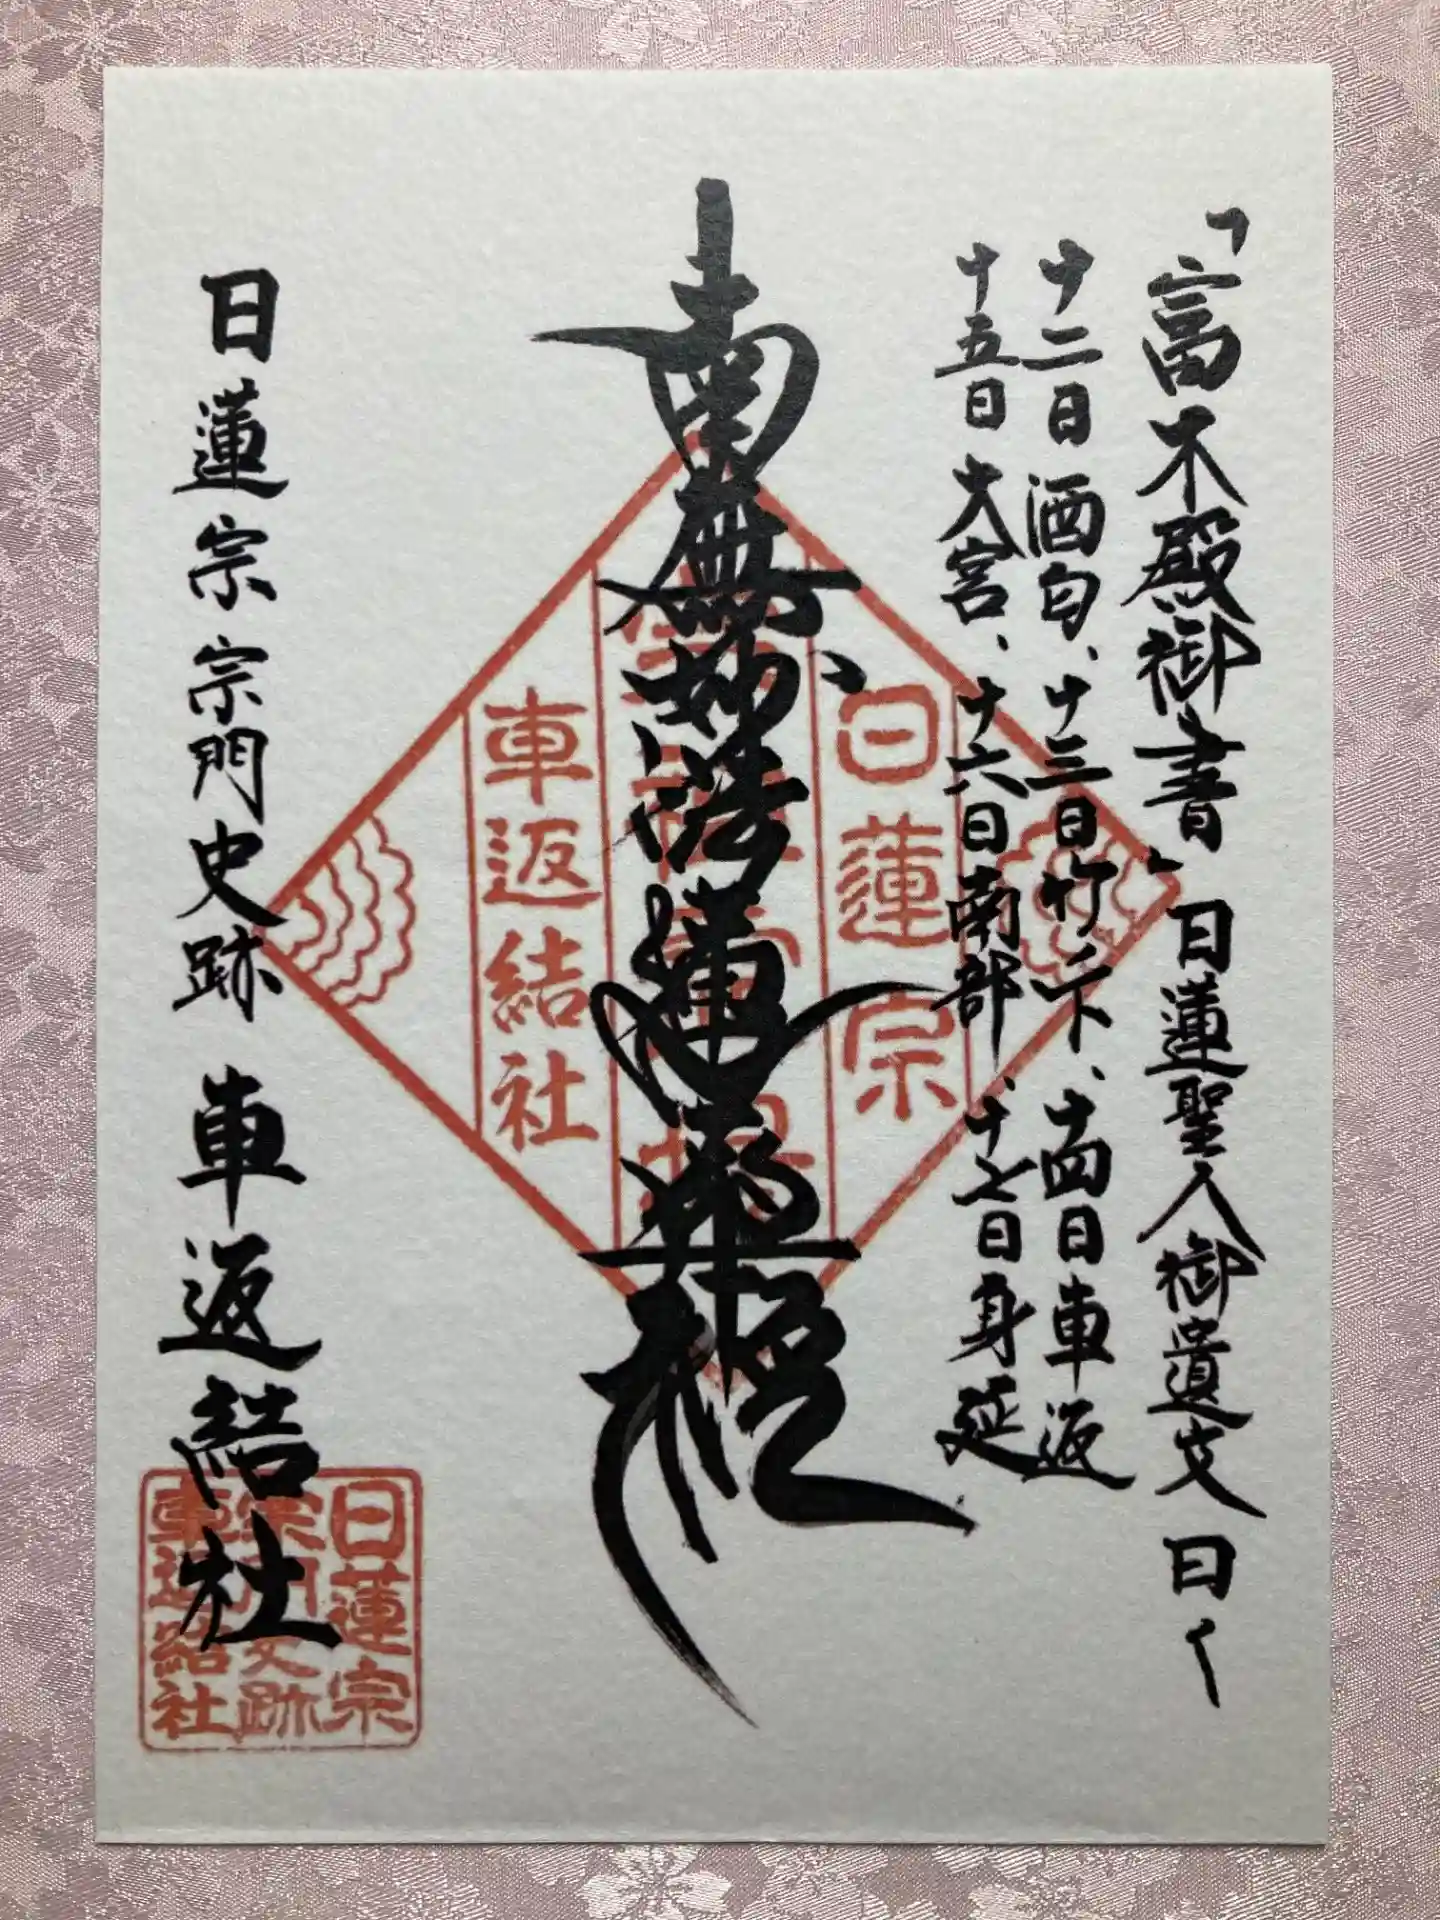 「富木殿御書」日蓮聖人御遺文曰く
十二日酒匂、十三日竹ノ下、十四日車返
十五日大宮、十六日南部、十七日身延
南無妙法蓮華経
日蓮宗宗門史跡 車返結社
日蓮宗
車返結社
日蓮宗
宗門史跡
車返結社